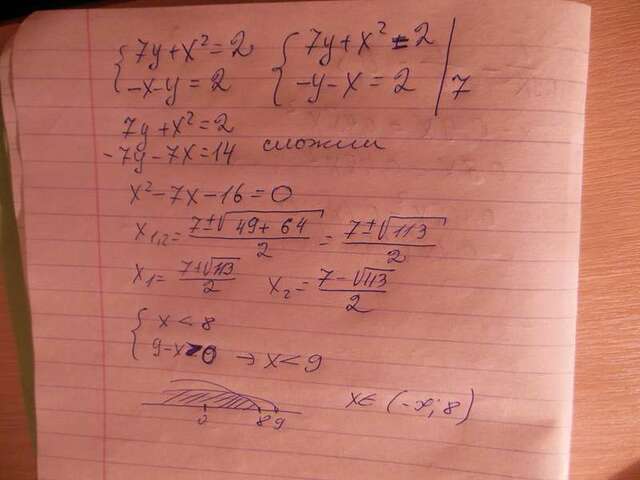 { 7y + x² = 2 { 7y + x² = 2 |
{ -x - y = 2 { -y - x = 2 | 7
7y + x² = 2
-7y - 7x = 14 сложим
x² - 7x - 16 = 0
x₁,₂ = (7±√(49+64))/2 = (7±√113)/2
x₁ = (7+√113)/2 x₂ = (7-√113)/2
{ x < 8
{ 9-x>0 → x < 9
0 8 9 x ∈ (-∞; 8)